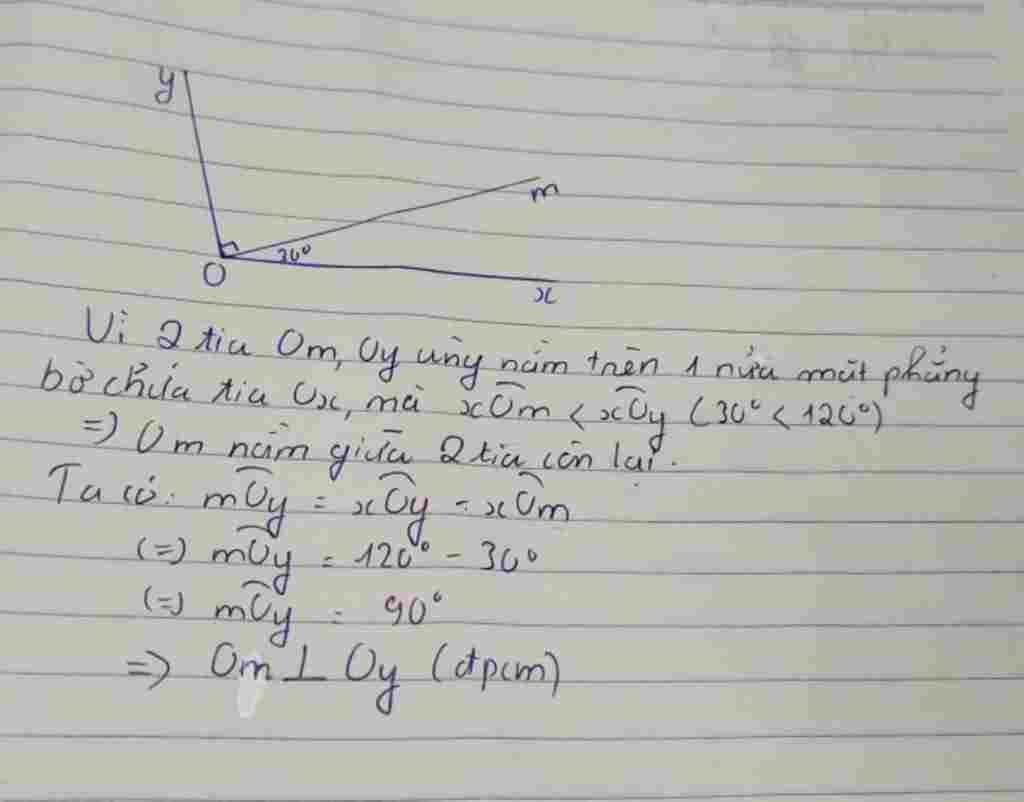 y
m
30°
O
x
Vì 2 tia Om, Oy cùng nằm trên 1 nửa mặt phẳng
bờ chứa tia Ox, mà xÔm < xÔy (30° < 120°)
=) Om nằm giữa 2 tia còn lại.
Ta có: mÔy = xÔy - xÔm
(=) mÔy = 120° - 30°
(=) mÔy = 90°
=> Om ⊥ Oy (đpcm)